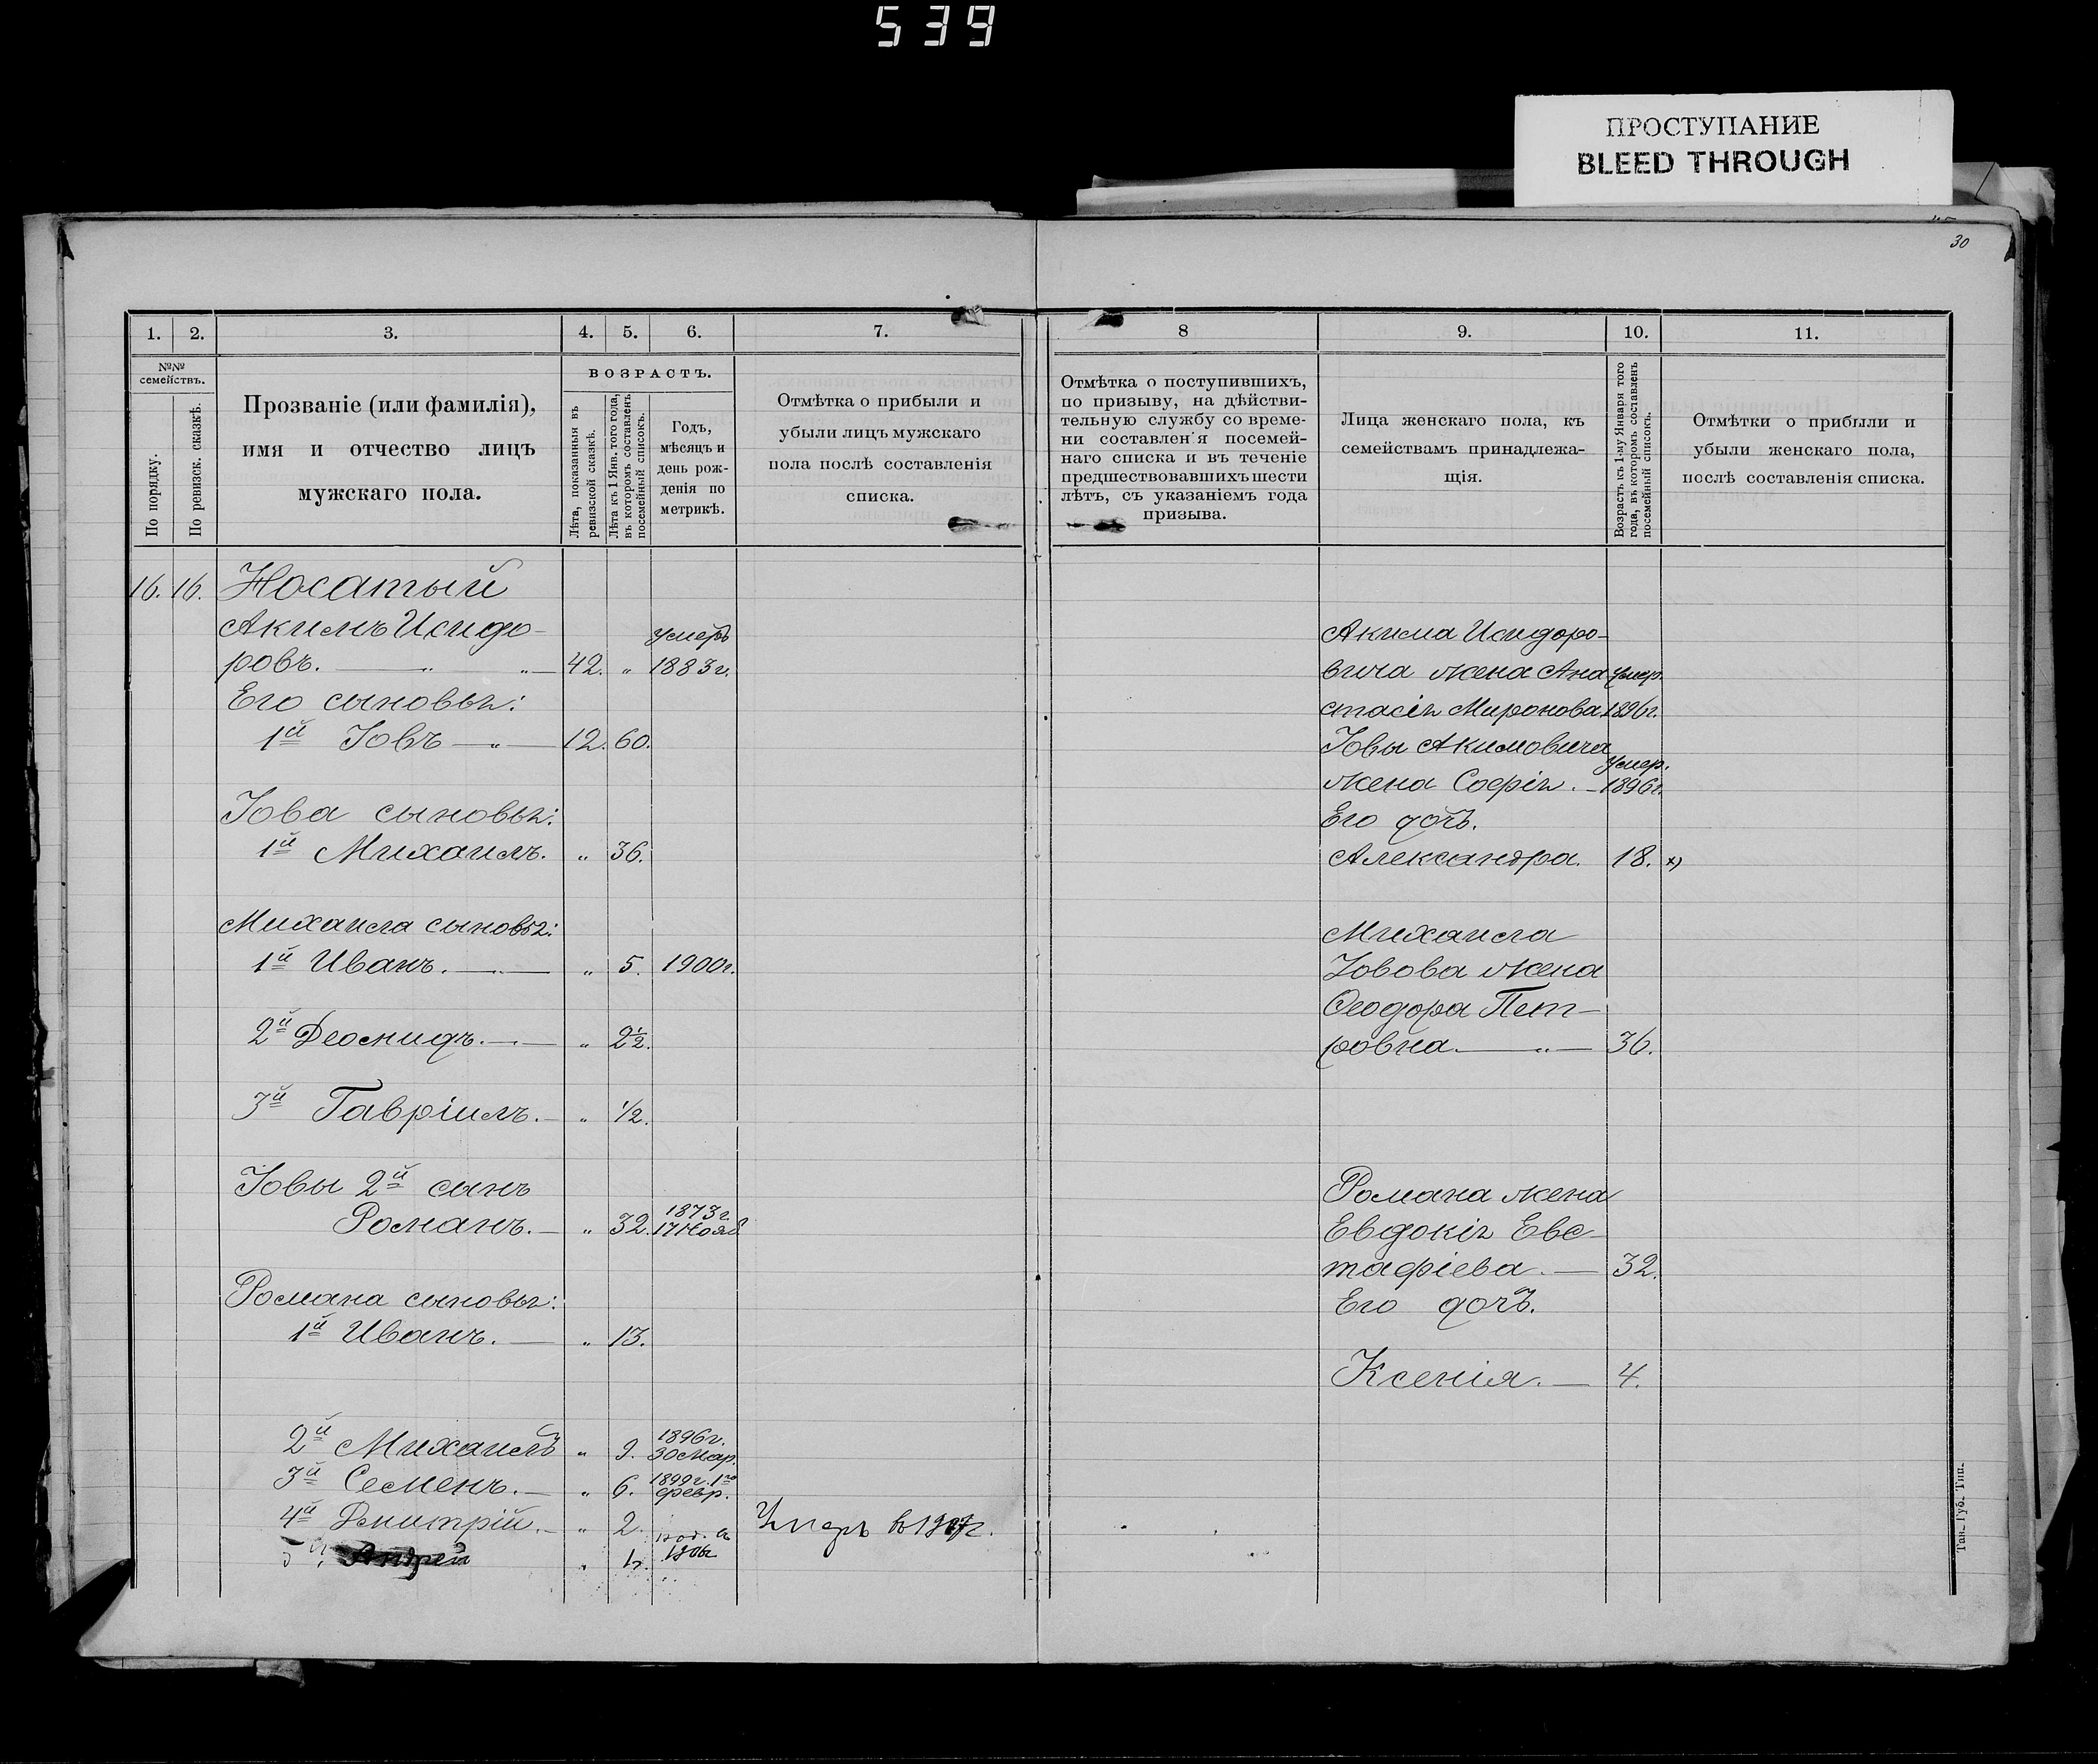 539
ПРОСТУПАНИЕ
BLEED THROUGH
30
1. 2. 3. 4. 5. 6. 7.
№№ семействъ.
По порядку.
По ревизск. сказкѣ.
Прозваніе (или фамилія),
имя и отчество лицъ
мужскаго пола.
ВОЗРАСТЪ.
Лѣта, показанныя въ
ревизской сказкѣ.
Лѣта къ 1 Янв. того года,
въ которомъ составленъ
посемейный списокъ.
Годъ,
мѣсяцъ и
день рож-
денія по
метрикѣ.
Отмѣтка о прибыли и
убыли лицъ мужскаго
пола послѣ составленія
списка.
16. 16. Носатый
Акимъ Исидо-
умеръ
ровъ. — „ „ — 42. „ 1883 г.
Его сыновья:
1й Іовъ — „ — 12. 60.
Іова сыновья:
1й Михаилъ. „ 36.
Михаила сыновья:
1й Иванъ. — „ 5. 1900 г.
2й Леонидъ. — „ 2½.
3й Гавріилъ. — „ ½.
Іовы 2й сынъ
Романъ. — „ 32. 1873 г.
17 Нояб.
Романа сыновья:
1й Иванъ. — „ 13.
2й Михаилъ „ 9. 1896 г.
30 Мар.
3й Семенъ. — „ 6. 1899 г. 1го
февр.
4й Дмитрій. — „ 2. Умеръ в 1907 г.
5й Андрей „ 1906
8 9. 10. 11.
Отмѣтка о поступившихъ,
по призыву, на дѣйстви-
тельную службу со време-
ни составленія посемей-
наго списка и въ теченіе
предшествовавшихъ шести
лѣтъ, съ указаніемъ года
призыва.
Лица женскаго пола, къ
семействамъ принадлежа-
щія.
Возрастъ къ 1-му Января того
года, въ которомъ составленъ
посемейный списокъ.
Отмѣтки о прибыли и
убыли женскаго пола,
послѣ составленія списка.
Акима Исидоро-
вича жена Ана умер.
стасія Миронова. 1896 г.
Іовы Акимовича
умер.
жена Софія. — 1896 г.
Его дочь.
Александра. 18. х)
Михаила
Іовова жена
Ѳеодора Пет-
ровна. — „ — 36.
Романа жена
Евдокія Евс-
тафіева. — 32.
Его дочь.
Ксенія. — 4.
Тав. Губ. Тип.